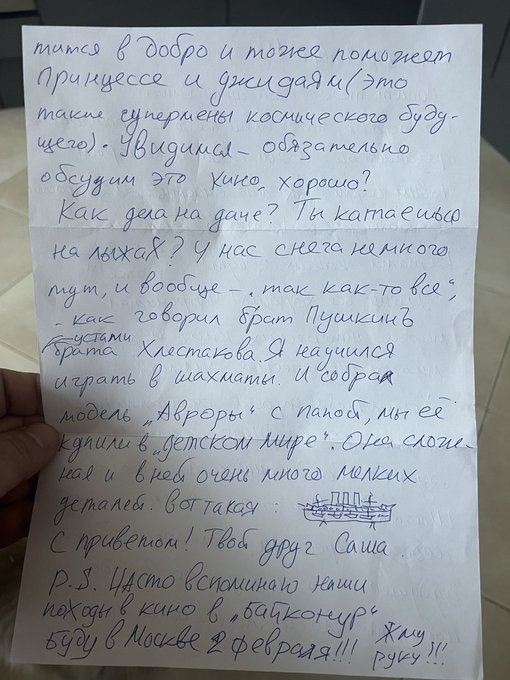 тится в добро и тоже поможет
принцессе и джидаям (это
такие супермены космического буду-
щего). Увидимся – обязательно
обсудим это кино, хорошо?
Как дела на даче? Ты катаешься
на лыжах? У нас снега немного
тут, и вообще – „так как-то все“,
– как говорил брат Пушкинъ
устами
брата Хлестакова. Я научился
играть в шахматы. И собрал
модель „Авроры“ с папой, мы её
купили в „Детском мире“. Она слож-
ная и в ней очень много мелких
деталей. Вот такая:
С приветом! Твой друг Саша.
P.S. Часто вспоминаю наши
походы в кино в „Байконур“
Буду в Москве 2 февраля!!! Жму
руку!!!